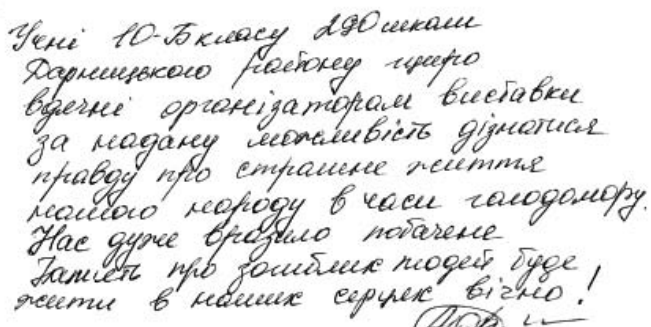 Учні 10-Б класу 290 школи
Дарницького району щиро
вдячні організаторам виставки
за надану можливість дізнатися
правду про страшне життя
нашого народу в часи голодомору.
Нас дуже вразило побачене
Память про загиблих людей буде
жити в наших серцях вічно!